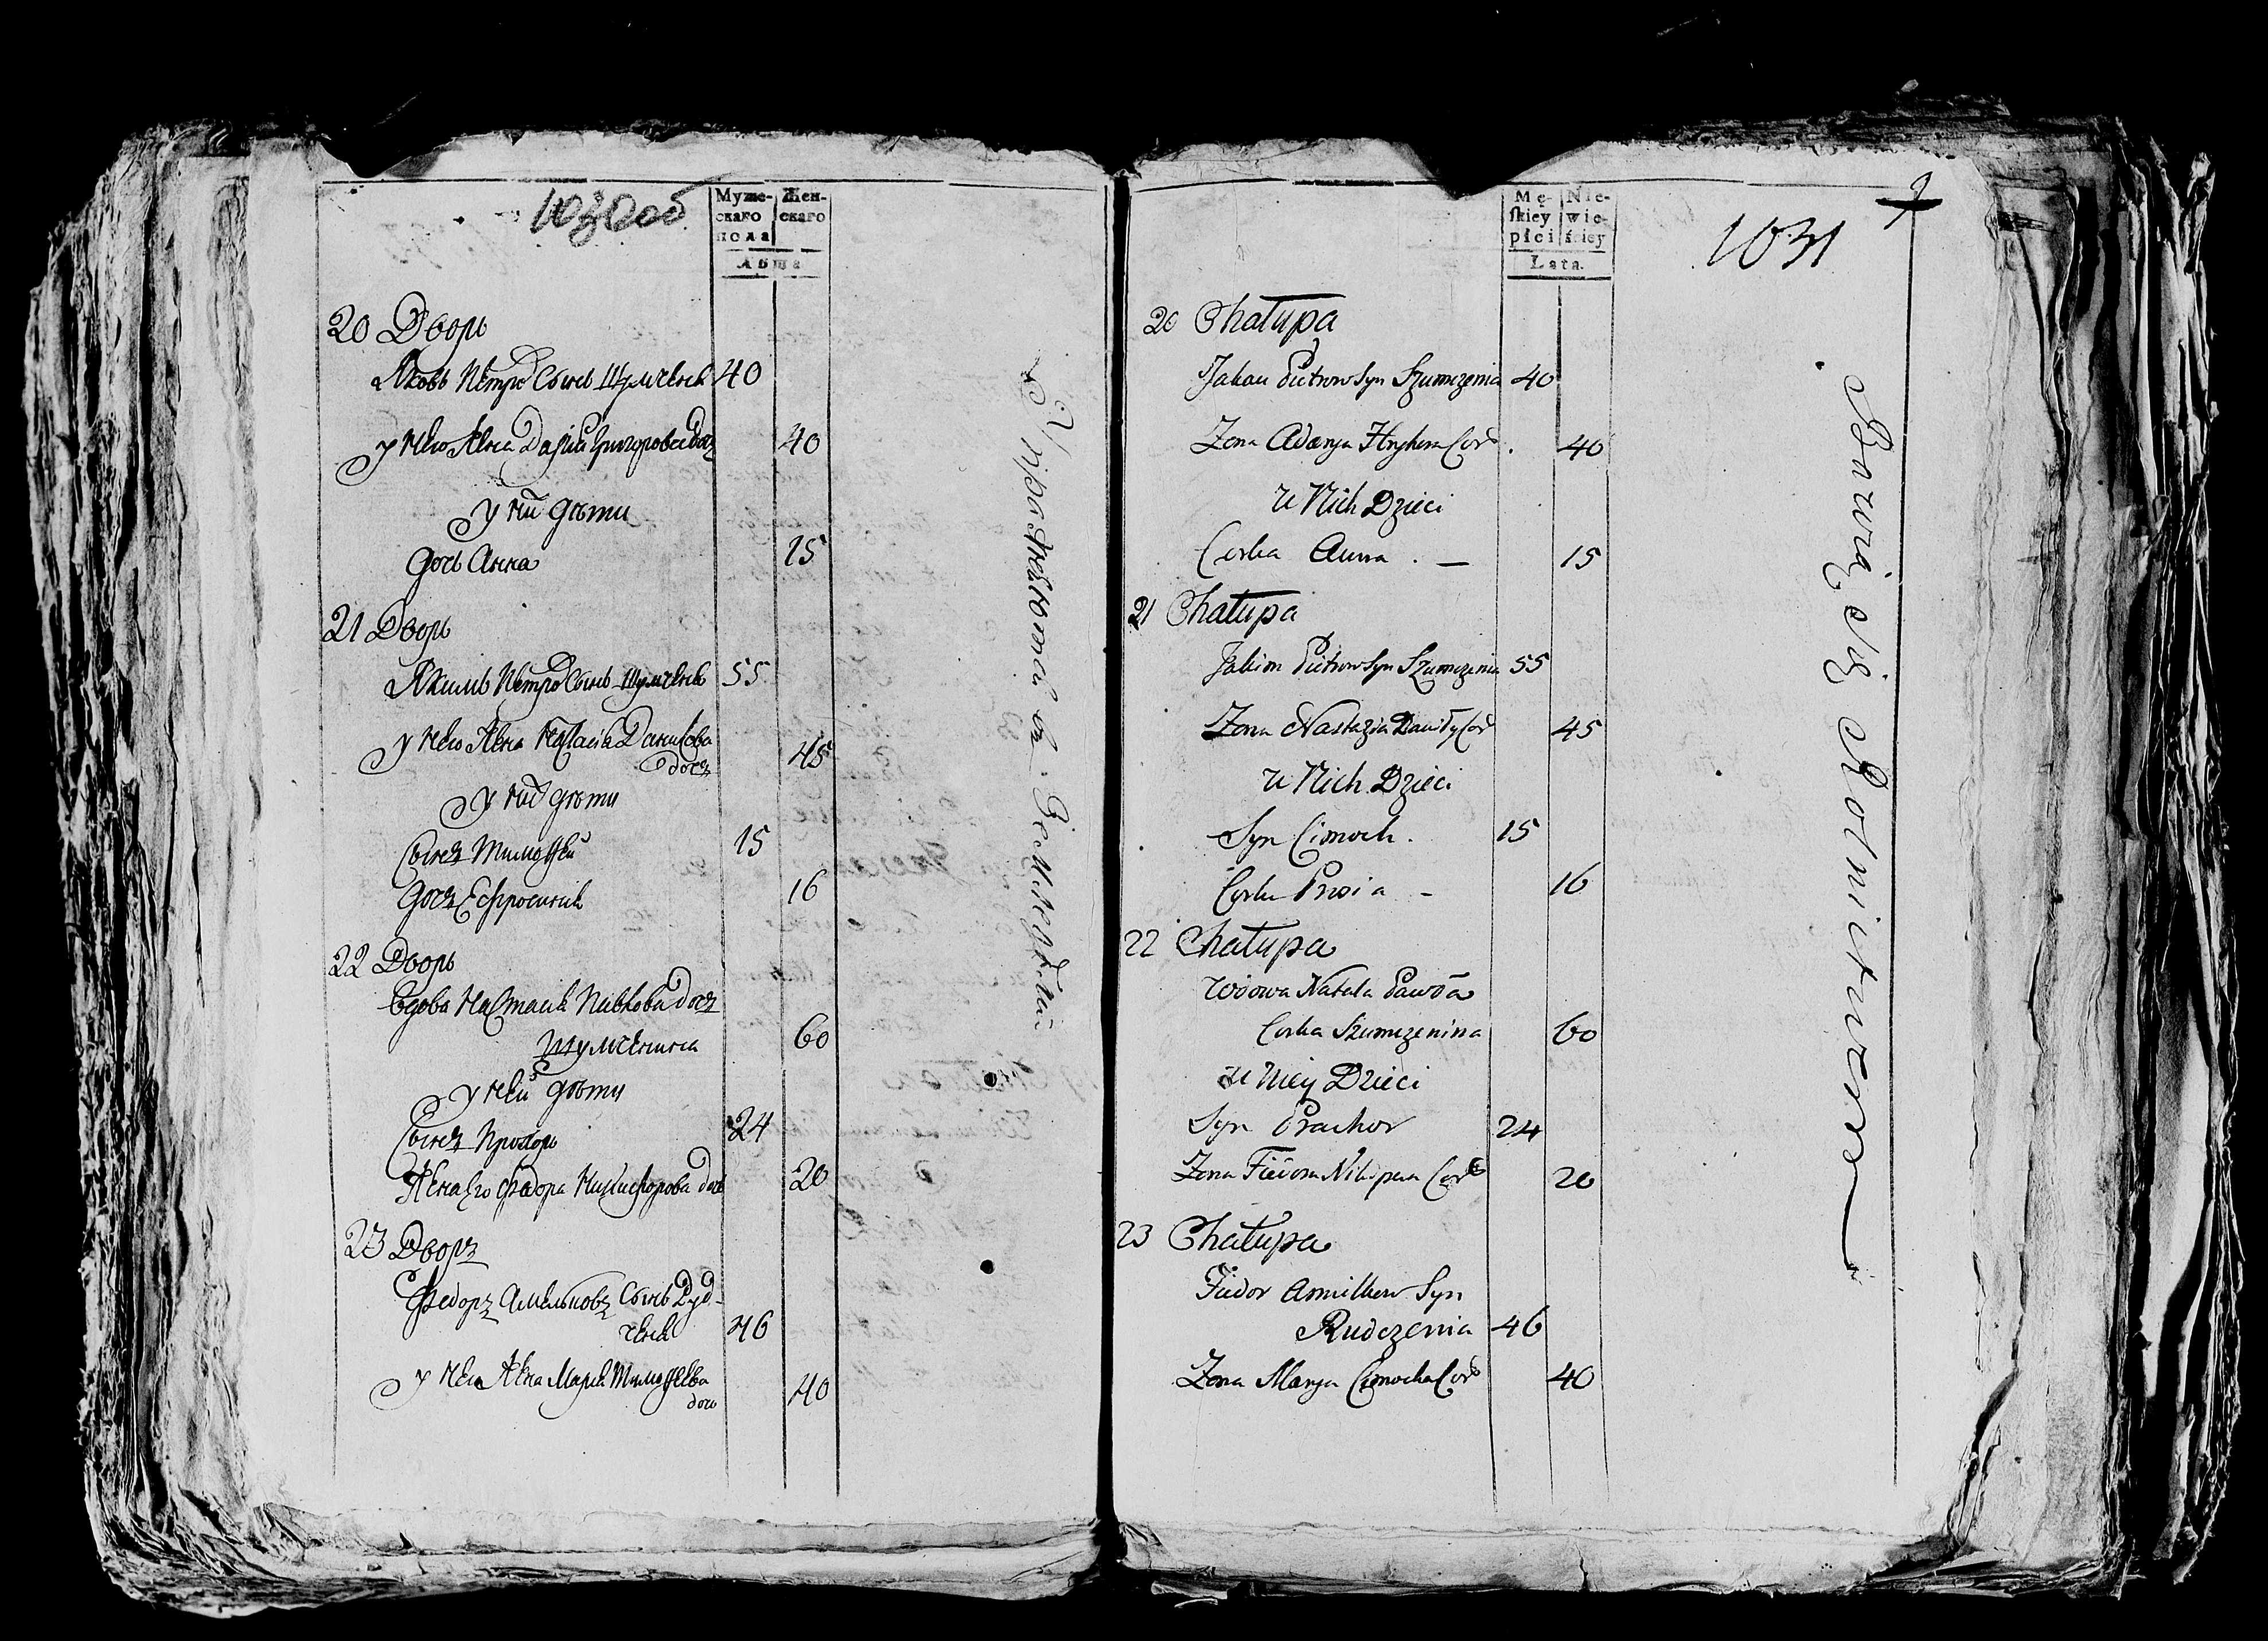 1030 об
Муже-
скаго
пола
Жен-
скаго
Лѣта
20 Дворъ
Яковъ Петро Сынъ Шумченя 40
у него Жена Дарья Григорова доч 40
у них дѣти
Дочь Анна 15
21 Дворъ
Якимъ Петро Сынъ Шумченя 55
у него Жена Настасія Данилова
дочь 45
у них дѣти
Сынъ Тимоѳей 15
Дочь Ефросинія 16
22 Дворъ
Вдова Настасія Павлова дочь
Шумченина 60
у ней дѣти
Сынъ Прохоръ 24
Жена Его Федора Никифорова доч 20
23 Дворъ
Федоръ Амельяновъ Сынъ Руд-
ченя 46
у него Жена Марія Тимоѳеева
дочь 40
Mę-
skiey
płci
Nie-
wie-
ściey
Lata.
1031
20 Chałupa
Jakau Pietrow Syn Szumczenia 40
Zona Adarya Hryhora Cor 40
u Nich Dzieci
Corka Anna . — 15
21 Chałupa
Jakim Pietrow Syn Szumczenia 55
Zona Nastazia Daniły Cor 45
u Nich Dzieci
Syn Cimoch . 15
Corka Prosia - 16
22 Chałupa
Wdowa Natala Pawła
Corka Szumczenina 60
u Niey Dzieci
Syn Prachor 24
Zona Fiedora Nikipara Cor 20
23 Chałupa
Fiedor Amilkow Syn
Rudczenia 46
Zona Marya Cimocha Cor 40